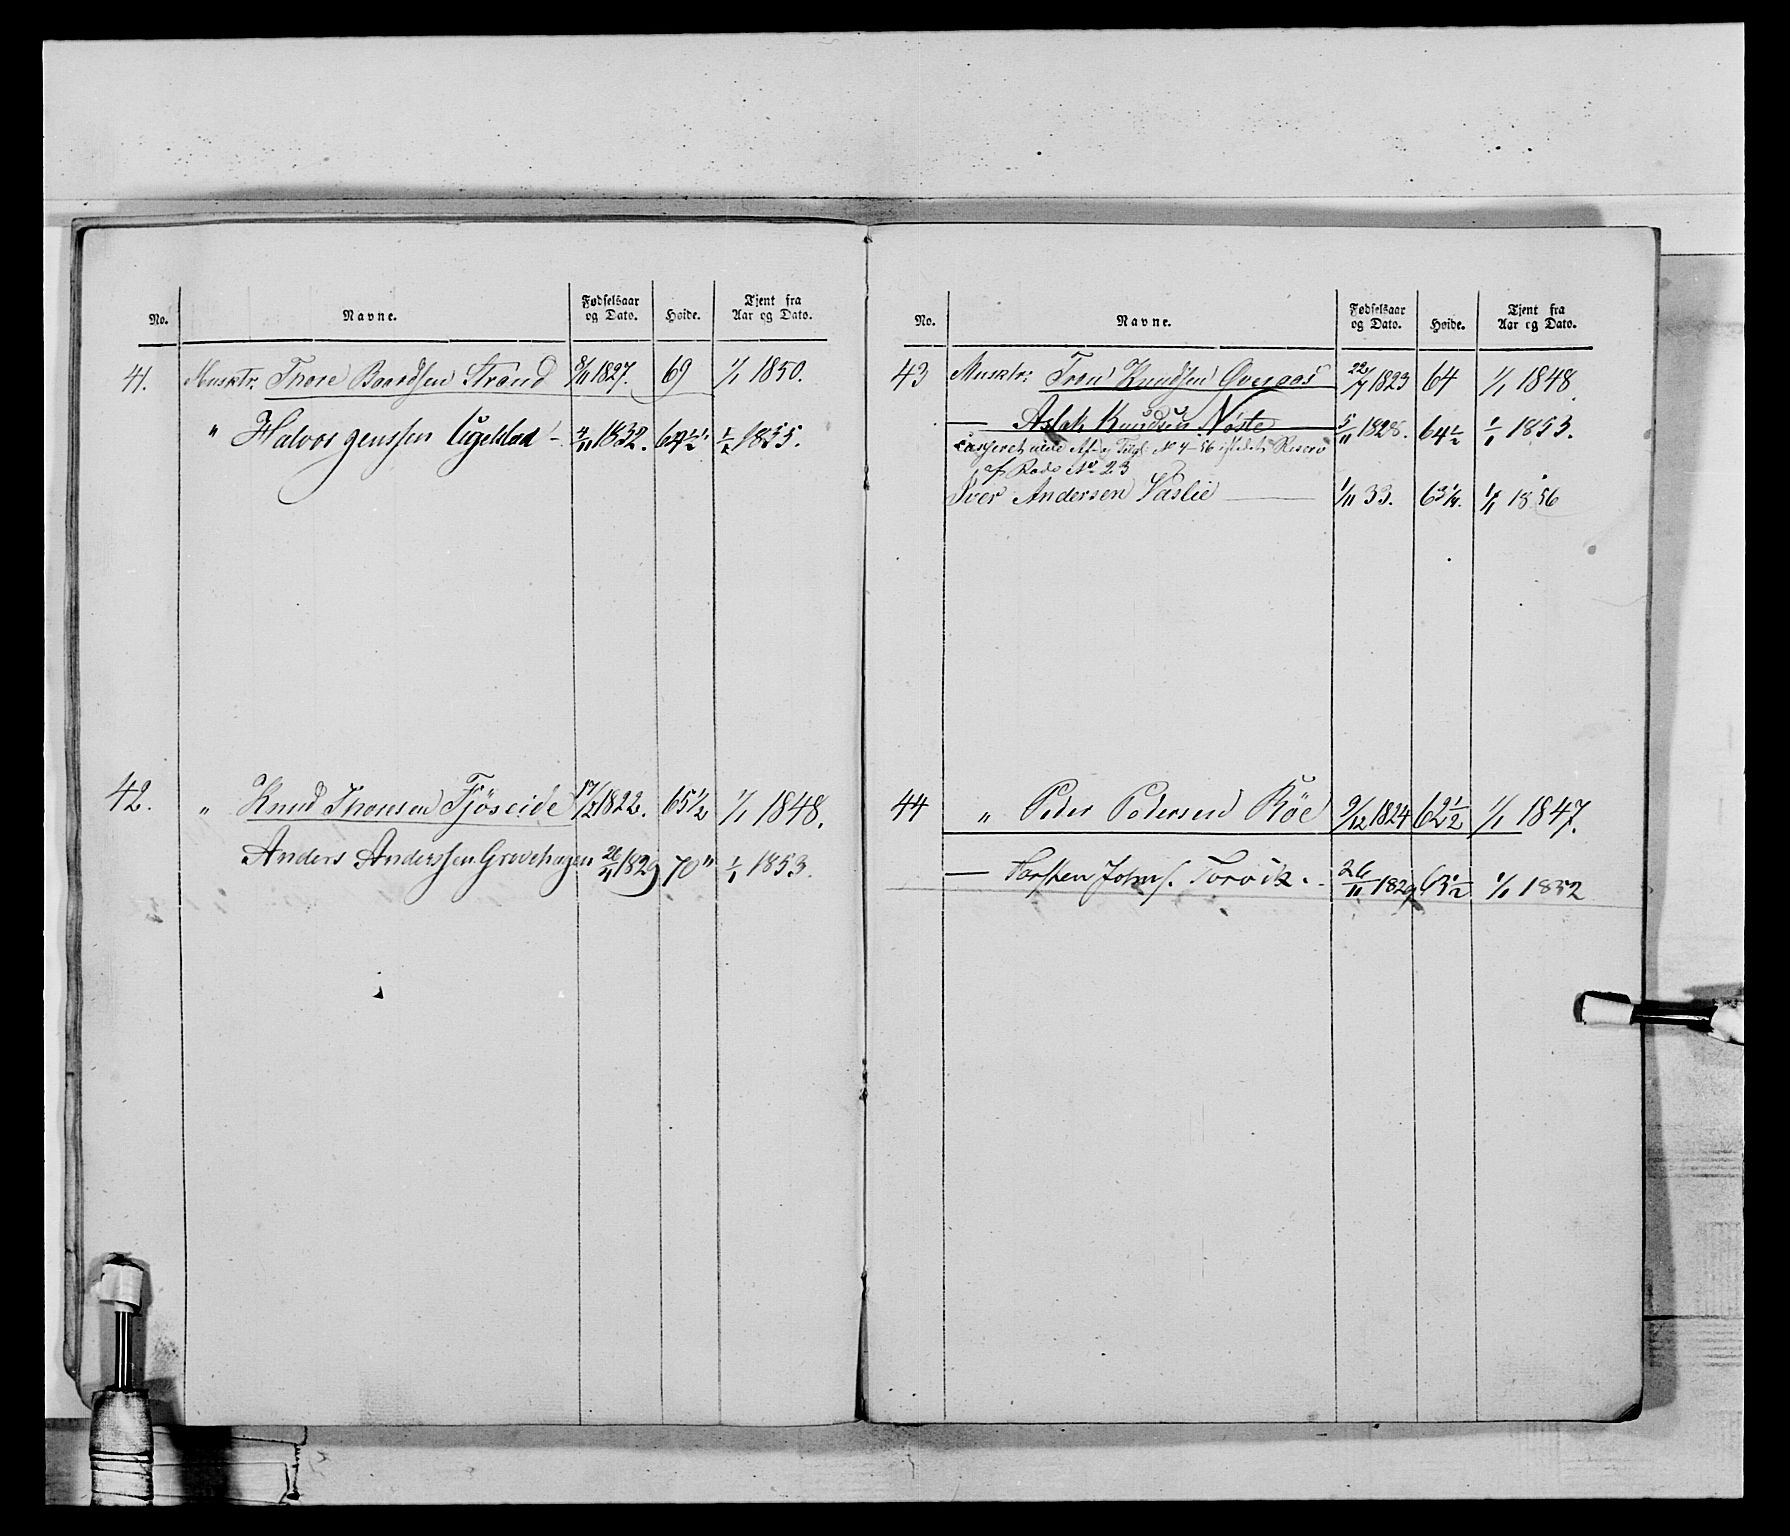 No. Navne. Fødselsaar og Dato. Høide. Tjent fra Aar og Dato.
41. Musktr. Thore Baardsen Strand 8/11 1827. 69 1/1 1850.
" Halvor Jenssen Ugelstad 4/11 1832. 1/1 1855.
42. " Knud Thomsen Fjöseide 17/12 1822. 65 1/2 1/1 1848.
Anders Anderssen Grovehagen 1829 70" 1/1 1853.
No. Navne. Fødselsaar og Dato. Høide. Tjent fra Aar og Dato.
43 Musktr. Tron Knudsen 22/7 1823 64 1/1 1848.
— Aslak Knudsen Nöste 5/11 1828. 64 1/2 1/1 1853.
No 4 - 56 istedet Reserv
af Rode No 23
Iver Andersen Vaslie 1/11 33. 63 1/4. 1856
44 " Peder Pedersen Röe 9/12 1824 62 1/2 1/1 1847.
— Torsten Johns. 26/11 1829 63 1/2 1/1 1852